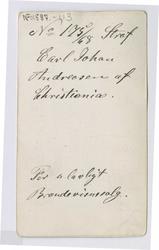 No 175/68 Straf
Carl Johan
Andreasen af
Christiania.
For ulovligt
Brændeviinssalg.